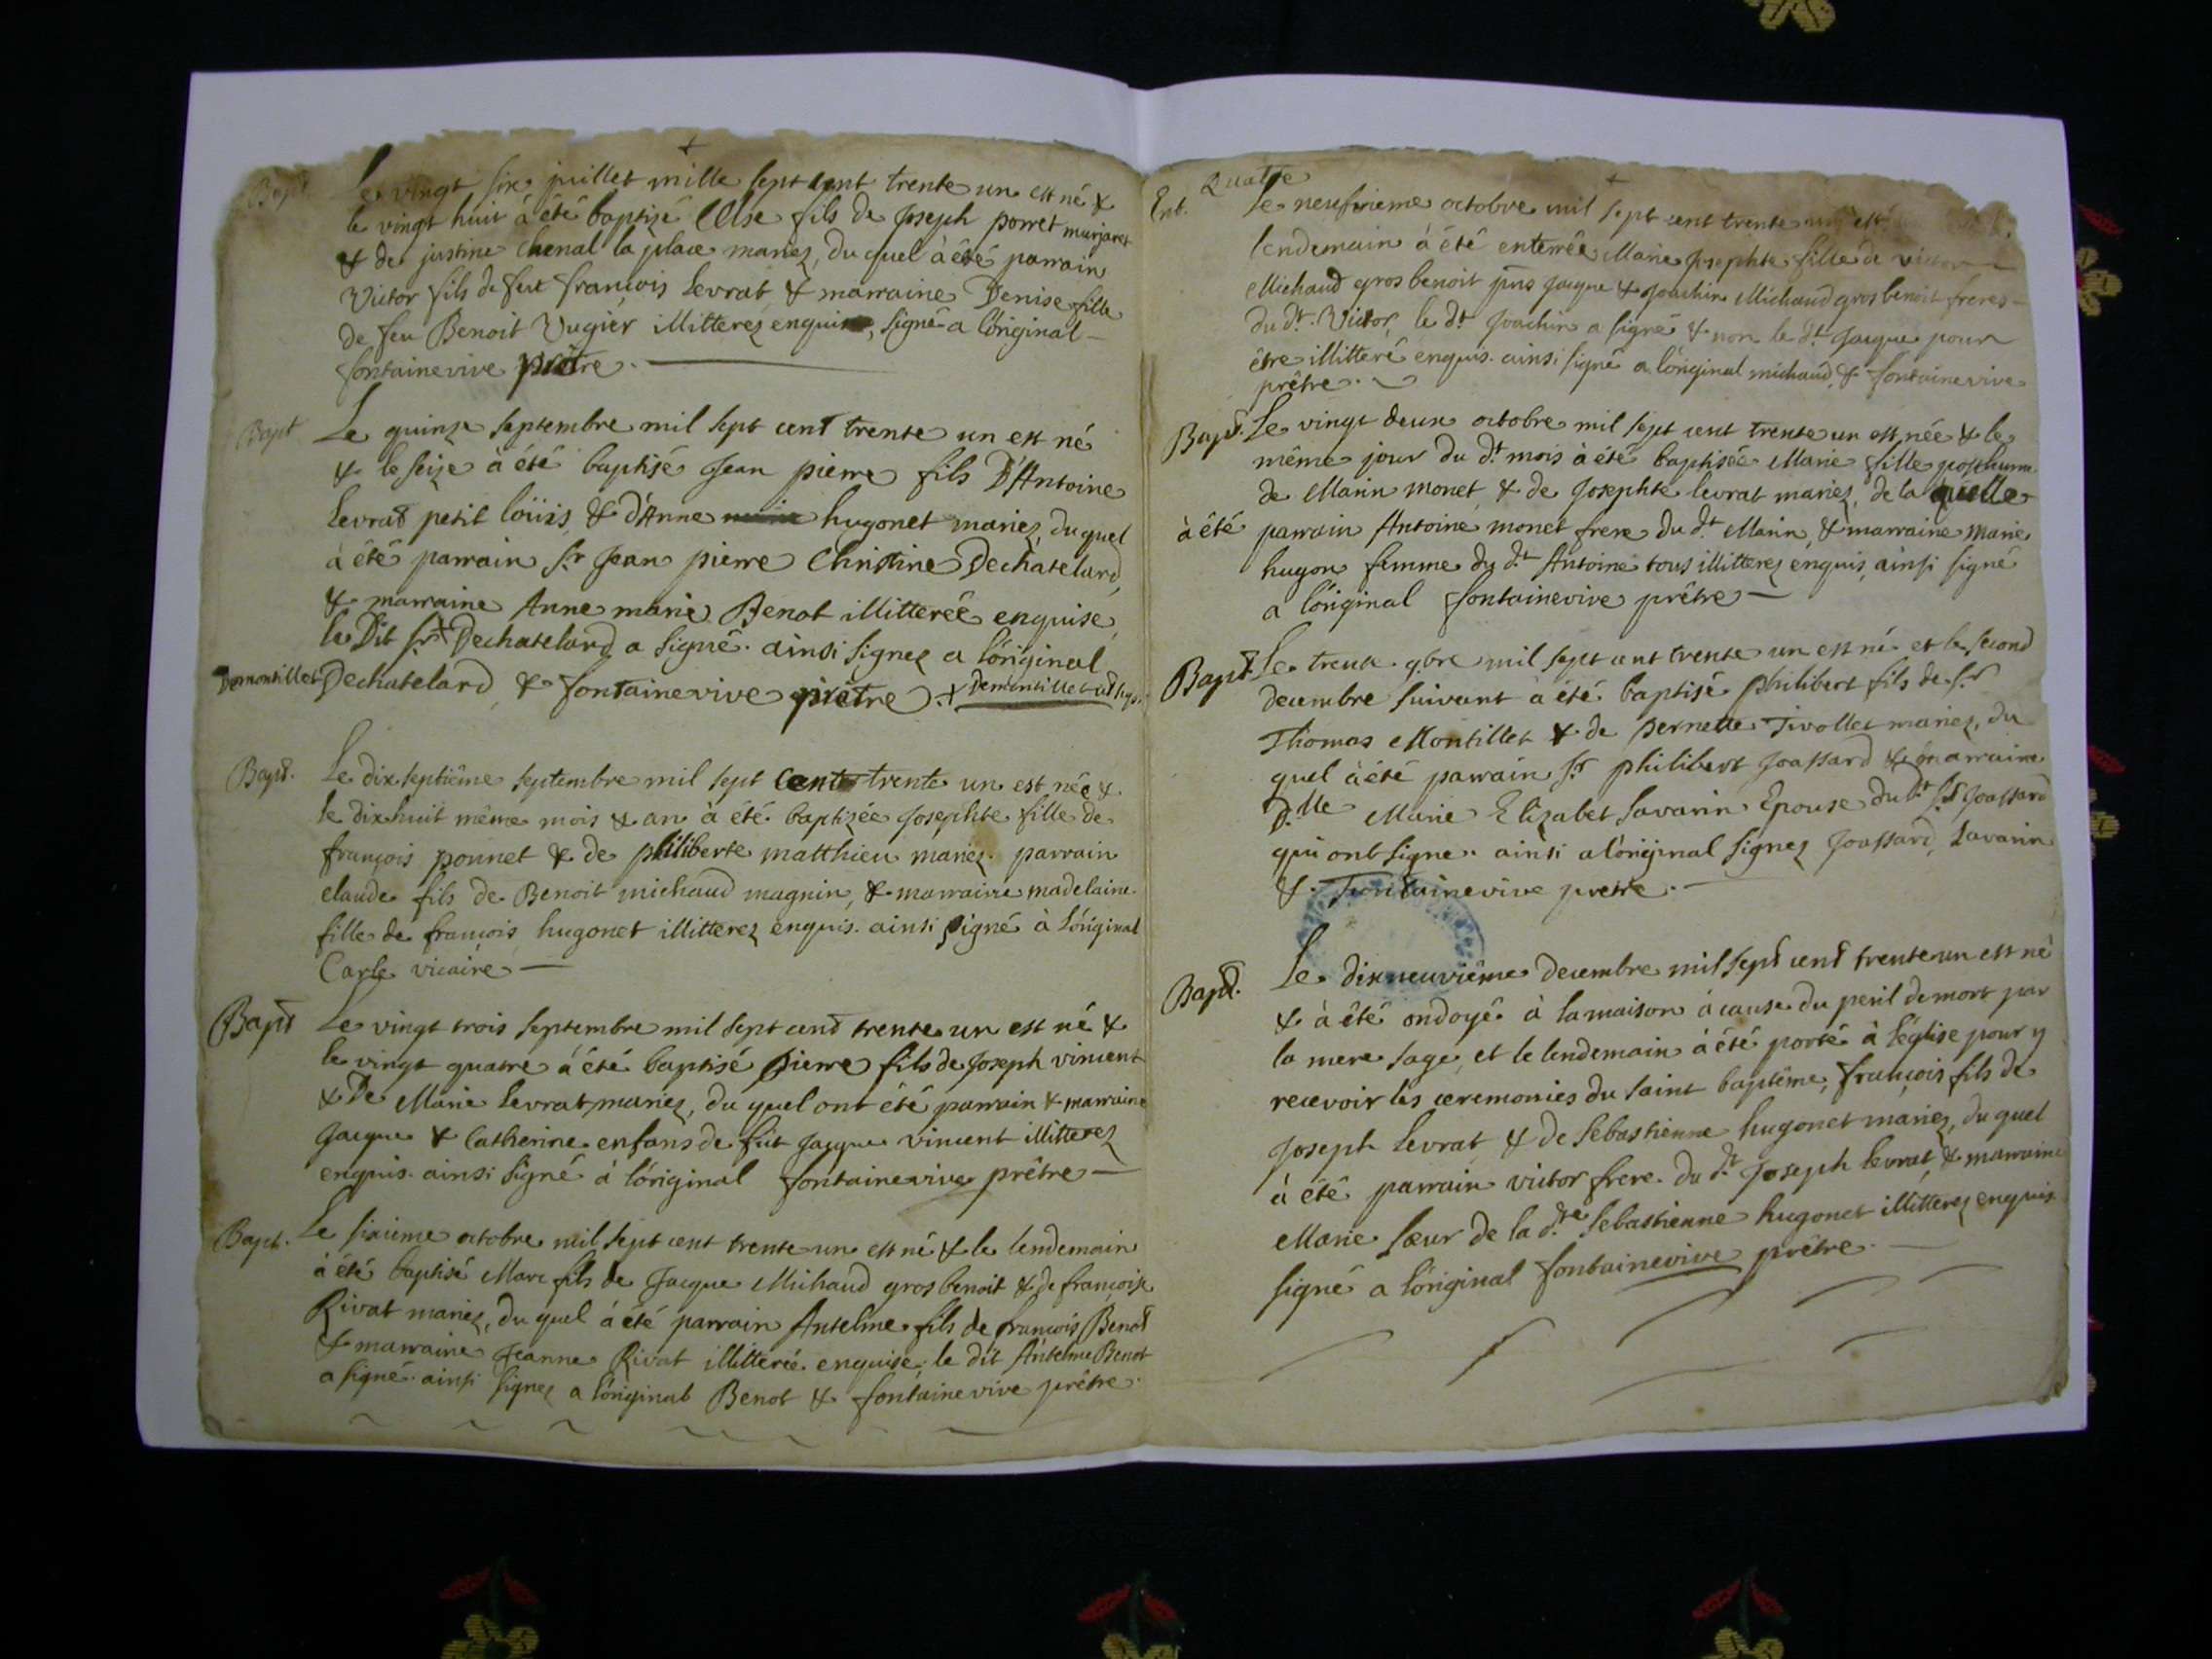 Bapt Le vingt six juillet mille sept cent trente un est né &
le vingt huit à été baptisé Else fils de Joseph porret murjaret
& de justine Chenal la place mariez, du quel à été parrain
Victor fils de feu françois Levrat & marraine Denise fille
de feu Benoit Vugier illitterez enquis, signé a l'original
fontainevive prêtre.
Bapt Le quinze septembre mil sept cent trente un est né
& le seize à été baptisé Jean pierre fils D'Antoine
Levrat petit loüis & d'Anne hugonet mariez, du quel
à été parrain Sr Jean pierre Christine Dechatelard
& marraine Anne marie Benot illitterée enquise,
le Dit Sr + Dechatelard a signé. ainsi signez a l'original
Demontillet Dechatelard & fontainevive prêtre. + Demontillet
Bapt. Le dix septième septembre mil sept cent trente un est née &
le dix huit même mois & an à été baptizée Josephte fille de
françois ponnet & de philiberte matthieu mariez. parrain
claude fils de Benoit michaud magnin, & marraine madelaine
fille de françois hugonet illitterez enquis. ainsi signé à l'original
Carle vicaire
Bapt Le vingt trois septembre mil sept cent trente un est né &
le vingt quatre à été baptisé pierre fils de Joseph vincent
& De Marie Levrat mariez, du quel ont été parrain & marraine
Jacque & Catherine enfans de feu Jacque vincent illitterez
enquis. ainsi signé à l'original fontainevive prêtre
Bapt. Le sixieme octobre mil sept cent trente un est né & le lendemain
à été baptisé Marc fils de Jacque Michaud gros benoit & de françoise
Rivat mariez, du quel à été parrain Antelme fils de françois Benot
& marraine Jeanne Rivat illitterée enquise, le dit Antelme Benot
a signé. ainsi signez a l'original Benot & fontainevive prêtre.
Quatre
Ent. Le neufvieme octobre mil sept cent trente un est
lendemain à été enterrée Marie Josephte fille de victor
Michaud gros benoit pns Jacque & Joachin Michaud gros benoit freres
du dt. Victor, le dt Joachin a signé & non le dt Jacque pour
être illitteré enquis. ainsi signé a l'original michaud, & fontainevive
prêtre.
Bapt. Le vingt deux octobre mil sept cent trente un est née & le
même jour du dt mois à été baptisée Marie fille posthume
de Marin monet & de Josephte levrat mariez, de la quelle
à été parrain Antoine monet frere du dt Marin, & marraine Marie
hugon femme du dt Antoine tous illitterez enquis, ainsi signé
a l'original fontainevive prêtre
Bapt Le trente 9bre mil sept cent trente un est né et le second
decembre suivant à été baptisé philibert fils de Sr
Thomas Montillet & de pernette Tivollet mariez, du
quel à été parrain Sr philibert Joassard & marraine
D.lle Marie Elizabet Savarin Epouse du dt Sr Joassard
qui ont signe. ainsi a l'original signez Joassard, Savarin
& fontainevive pretre.
Bapt. Le dix neuvième decembre mil sept cent trente un est né
& à été ondoyé à la maison à cause du peril de mort par
la mere sage, et le lendemain à été porté à l'église pour y
recevoir les ceremonies du saint baptême, françois fils de
Joseph Levrat & de Sebastienne hugonet mariez, du quel
à été parrain victor frere du dt Joseph levrat, & marraine
Marie sœur de la dte Sebastienne hugonet illitterez enquis
signé a l'original fontainevive prêtre.